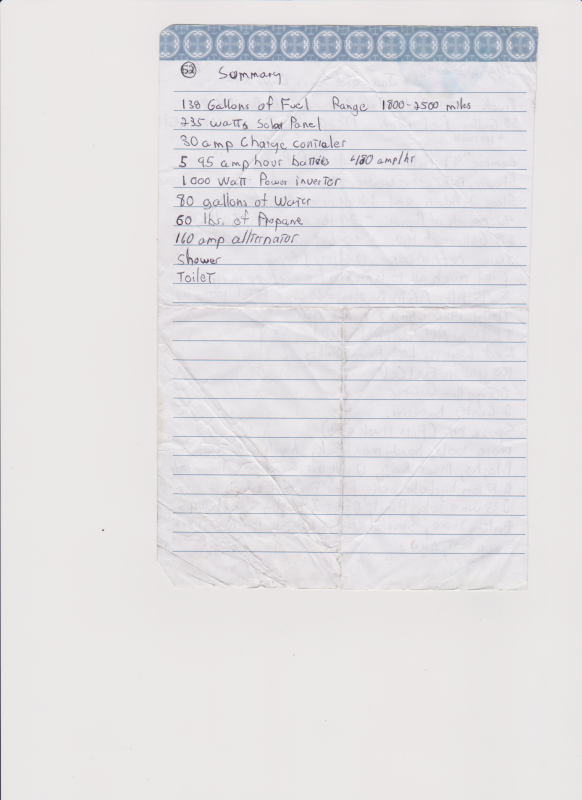 52 Summary
138 Gallons of Fuel Range 1800-2500 miles
235 watts Solar Panel
30 amp Charge contraler
5 95 amp hour battries 480 amp/hr
1000 Watt Power invertor
80 gallons of Water
60 lbs. of Propane
160 amp allternator
Shower
Toilet